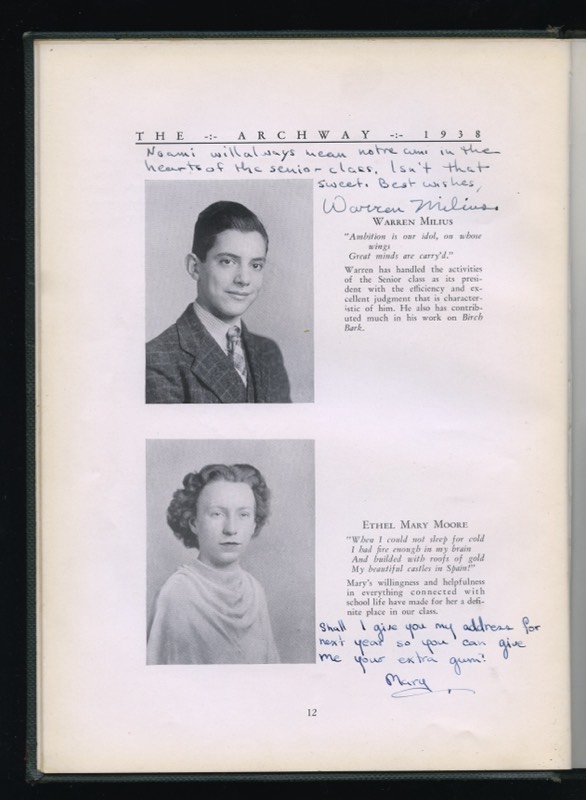 THE -:- ARCHWAY -:- 1938
Noami will always mean notre ami in the
hearts of the senior class. Isn't that
sweet. Best wishes,
Warren Milius
WARREN MILIUS
"Ambition is our idol, on whose
wings
Great minds are carry'd."
Warren has handled the activities
of the Senior class as its presi-
dent with the efficiency and ex-
cellent judgment that is character-
istic of him. He also has contrib-
uted much in his work on Birch
Bark.
ETHEL MARY MOORE
"When I could not sleep for cold
I had fire enough in my brain
And builded with roofs of gold
My beautiful castles in Spain!"
Mary's willingness and helpfulness
in everything connected with
school life have made for her a defi-
nite place in our class.
Shall I give you my address for
next year so you can give
me your extra gum?
Mary
12